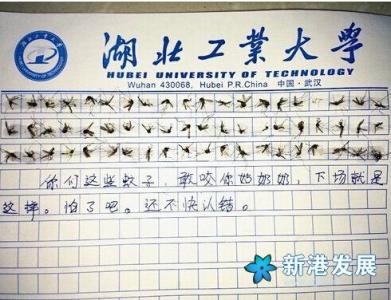 湖北工業大學
HUBEI UNIVERSITY OF TECHNOLOGY
Wuhan 430068, Hubei P.R.China 中国·武汉
你们这些蚊子,敢咬你姑奶奶,下场就是
这样。怕了吧。还不快认错。
新港发展